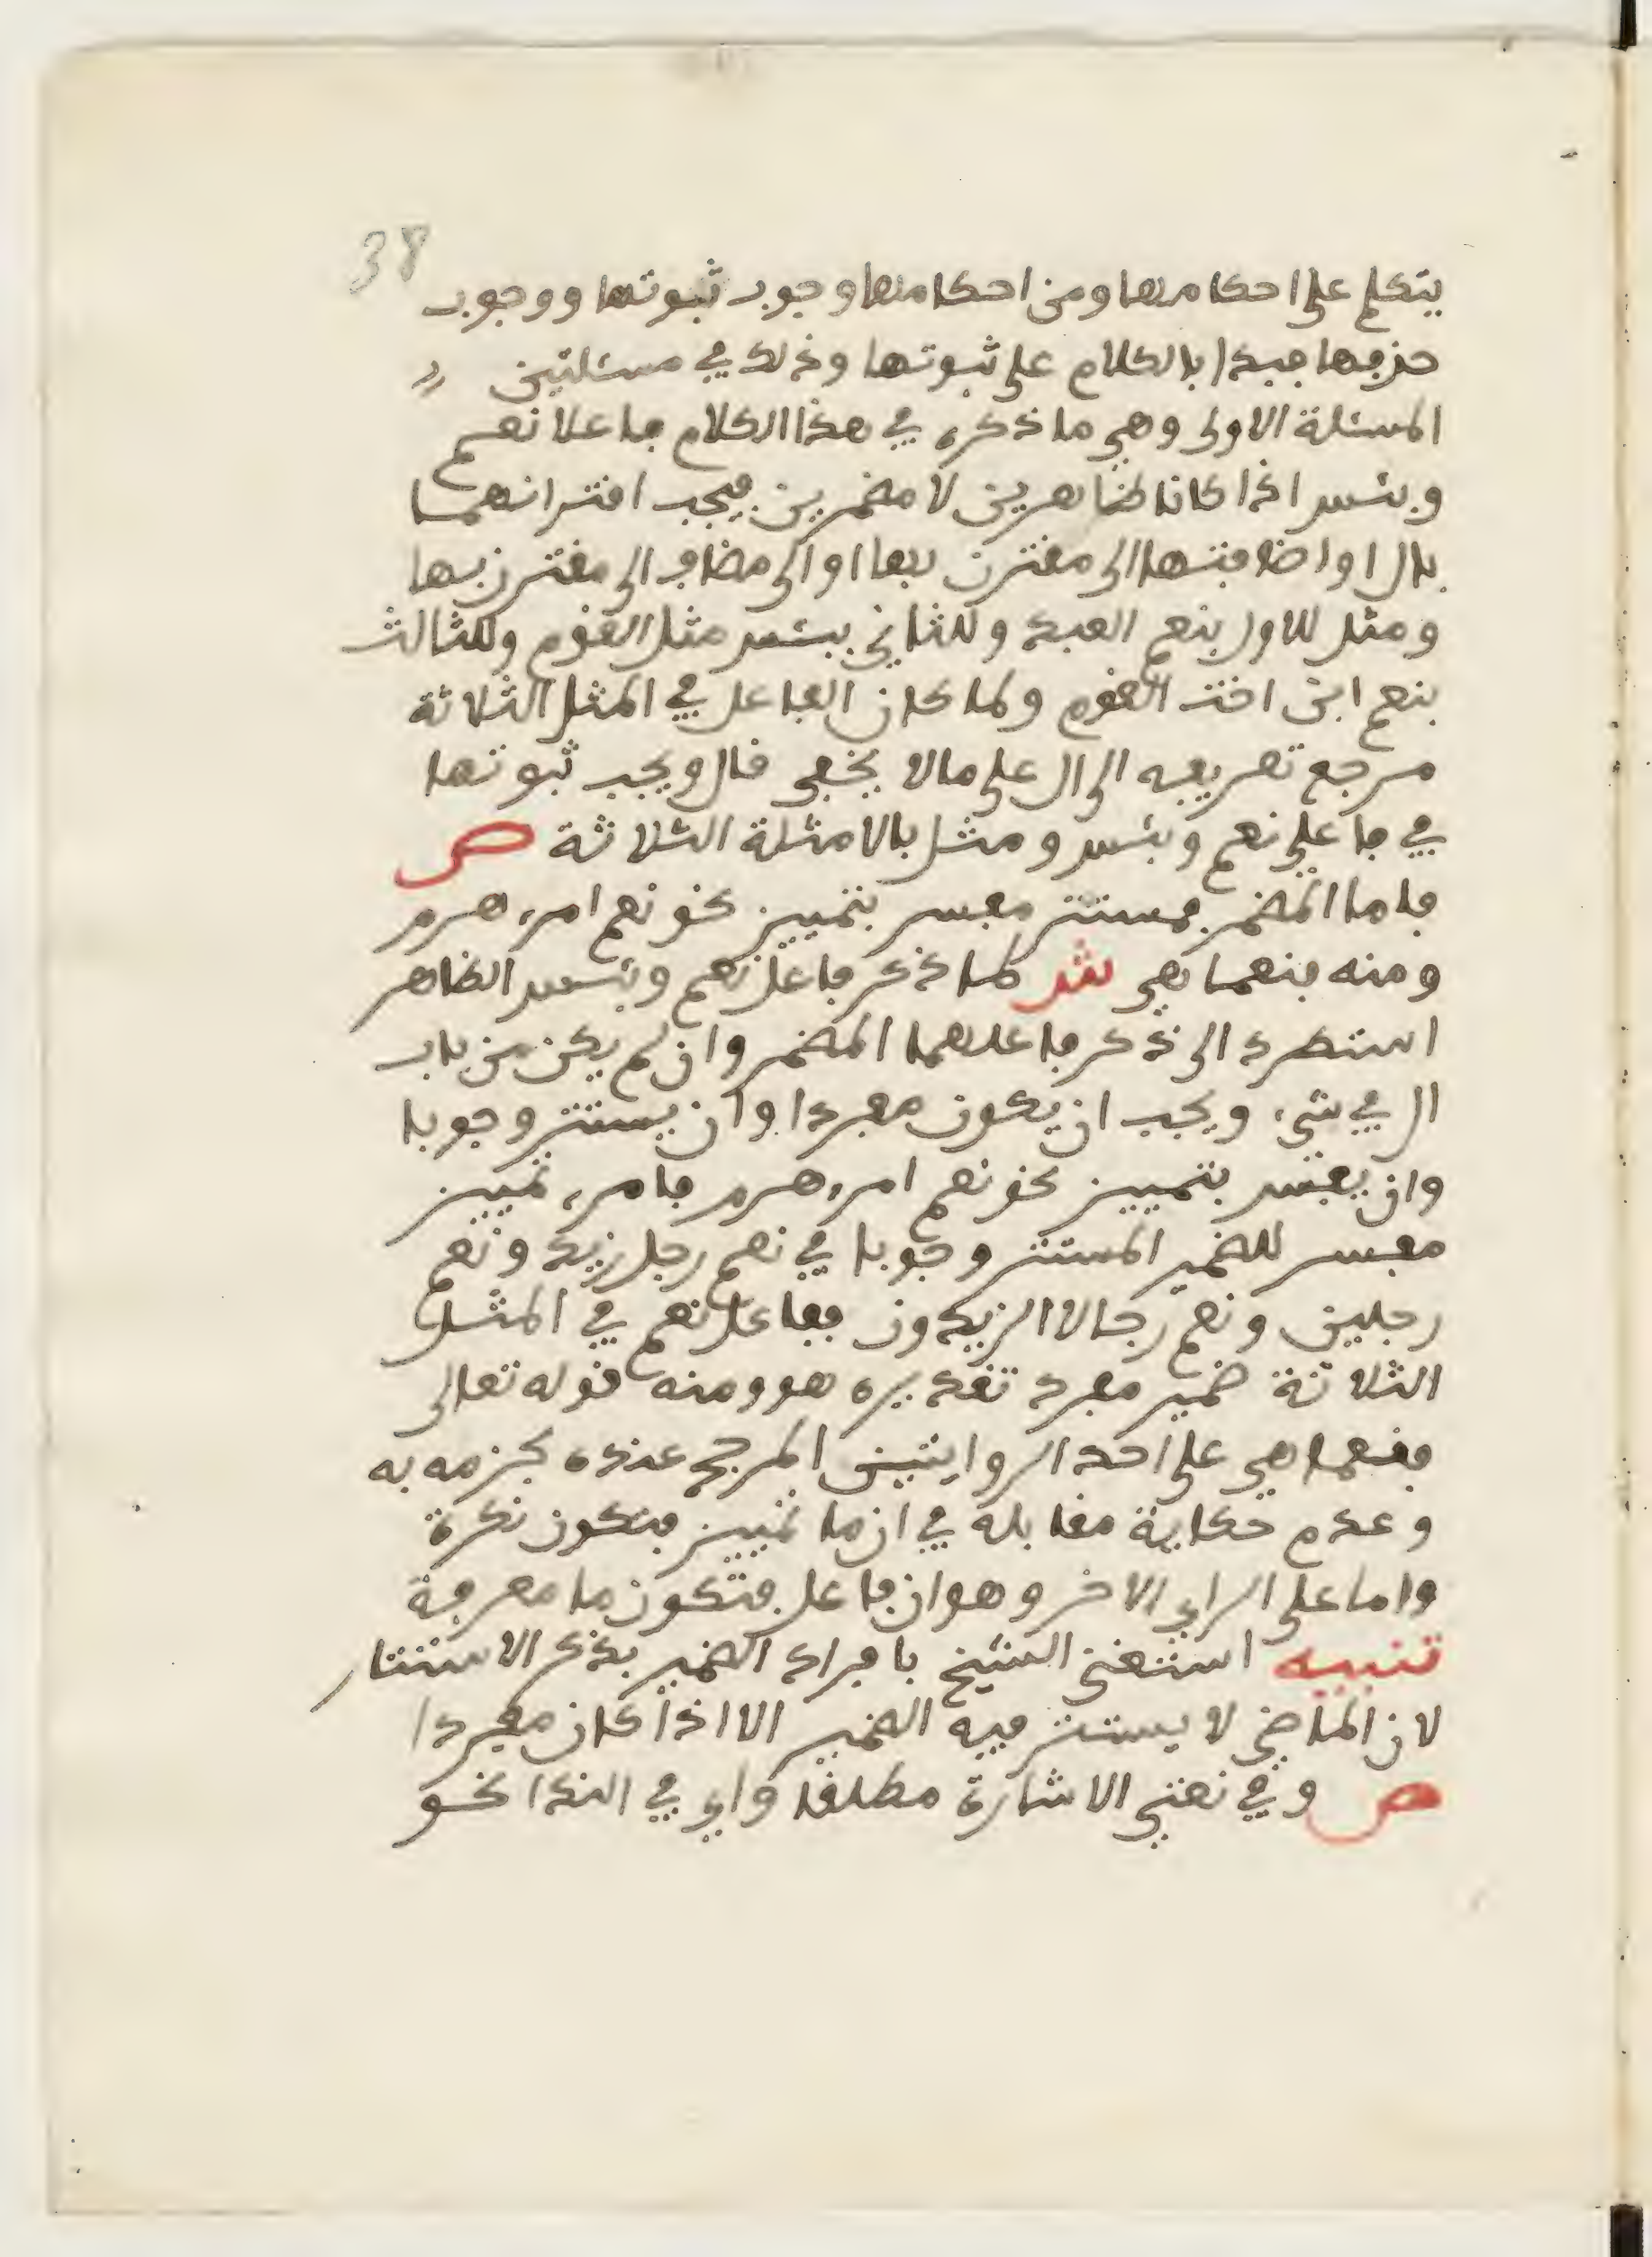 38
يتكلم على احكامها ومن احكامها وجوب ثبوتها ووجوب
حذفها فبدا بالكلام على ثبوتها وذلك في مسئلتين
المسئلة الاولى وهي ما ذكره في هذا الكلام فاعلا نعم
وبئس اذا كانا ظاهرين لا مضمرين فيجب اقترانهما
بال او اضافتهما الى مقترن بها او الى مضاف الى مقترن بها
ومثل للاول بنعم العبد وللثاني ببئس مثل القوم وللثالث
بنعم ابن اخت القوم ولما كان الفاعل في المثل الثلاثة
مرجع تعريفه الى ال على ما لا يخفى قال ويجب ثبوتها
في فاعلي نعم وبئس ومثل بالامثلة الثلاثة ص
فاما المضمر فمستتر مفسر بتمييز نحو نعم امرء هرم
ومنه فنعما هي ش لما ذكر فاعل نعم وبئس الظاهر
استطرد الى ذكر فاعلهما المضمر وان لم يكن من باب
ال في شيء ويجب ان يكون مفردا وان يستتر وجوبا
وان يفسر بتمييز نحو نعم امرء هرم فامرء تمييز
مفسر للضمير المستتر وجوبا في نعم رجل زيد ونعم
رجلين ونعم رجالا الزيدون ففاعل نعم في المثل
الثلاثة ضمير مفرد تقديره هو ومنه قوله تعالى
فنعما هي على احد الروايتين المرجح عنده لجزمه به
وعدم حكاية مقابله في ان ما تمييز فتكون نكرة
واما على الراي الاخر وهو ان فاعل فتكون ما معرفة
تنبيه استغنى الشيخ بافراد الضمير بذكر الاستتار
لان الماضي لا يستتر فيه الضمير الا اذا كان مفردا
ص وفي نعتي الاشارة مطلقا واي في الندا نحو